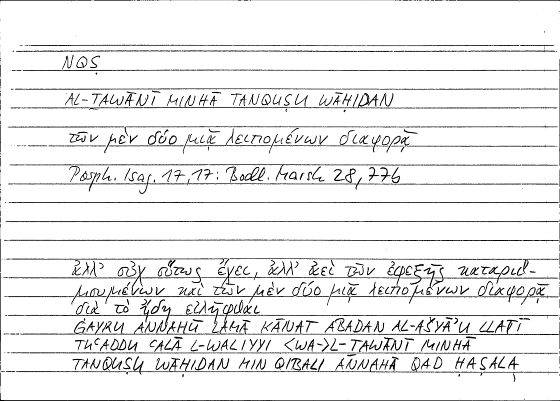 NQṢ
AL-TAWĀNĪ MINHĀ TANQUṢU WĀḤIDAN
τῶν μὲν δύο μιᾷ λειπομένων διαφορᾷ
Porph. Isag. 17,17: Bodl. Marsh 28,77b
ἀλλ' οὐχ οὕτως ἔχει, ἀλλ' ἀεὶ τῶν ἐφεξῆς καταριθ-
μουμένων καὶ τῶν μὲν δύο μιᾷ λειπομένων διαφορᾷ
διὰ τὸ ἤδη εἰλῆφθαι
GAYRU ANNAHŪ LAMĀ KĀNAT ABADAN AL-AŠYĀ'U LLATĪ
TUʿADDU ʿALĀ L-WALIYYI <WA->L-TAWĀNĪ MINHĀ
TANQUṢU WĀḤIDAN MIN QIBALI ANNAHĀ QAD ḤAṢALA